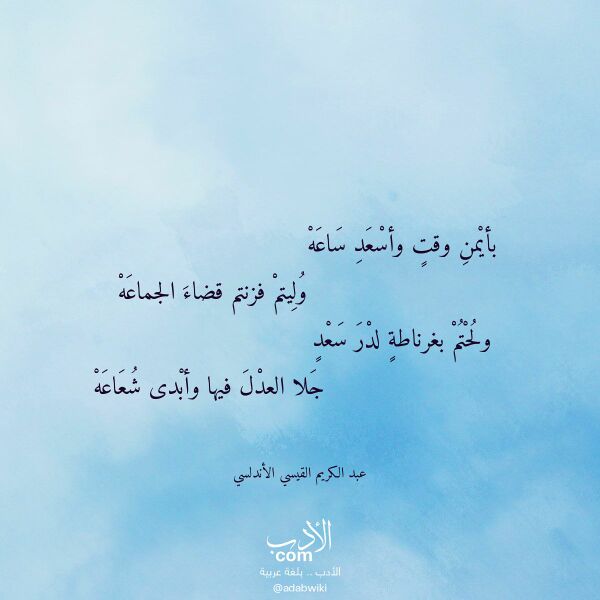 بأيْمنِ وقتٍ وأسْعَدِ سَاعَهْ
وُلِيتمْ فزنتم قضاءَ الجماعَهْ
ولُحْتُمْ بغرناطةٍ لدْرَ سَعْدٍ
جَلا العدْلَ فيها وأبْدى شُعَاعَهْ
عبد الكريم القيسي الأندلسي
الأدب
com
الأدب .. بلغة عربية
@adabwiki